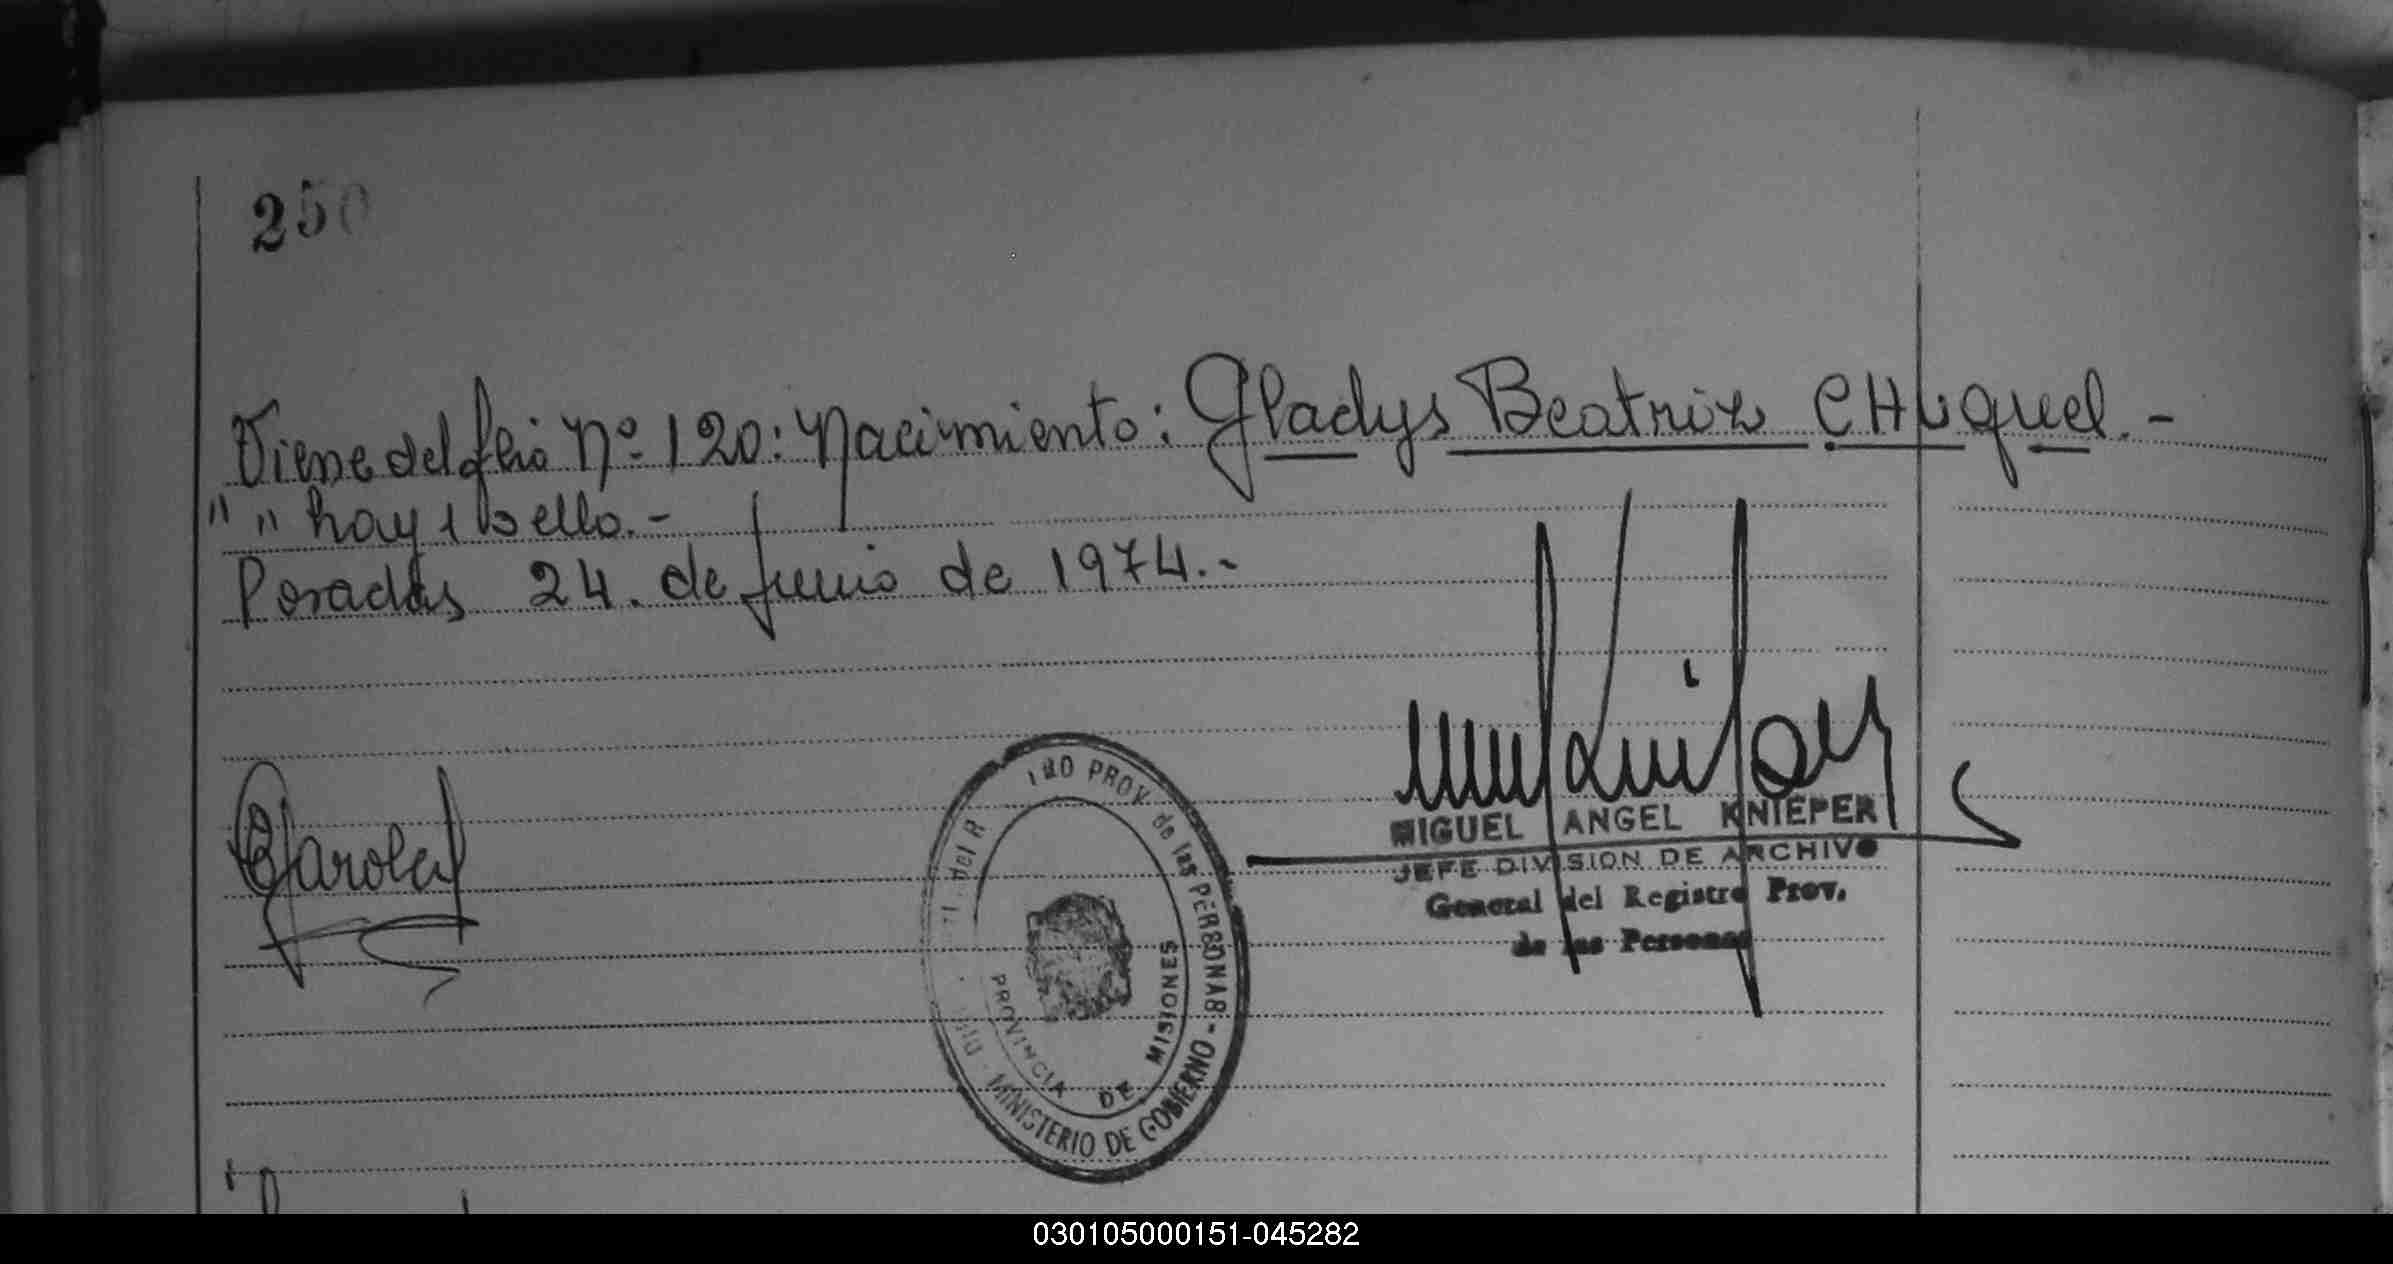 250
Viene del folio Nº. 120: Nacimiento: Gladys Beatriz CHuquel.-
" " hay 1 sello.-
Posadas 24. de Junio de 1974.-
MIGUEL ANGEL KNIEPER
JEFE DIVISION DE ARCHIVO
General del Registro Prov.
de las Personas
PROV de las PERSONAS - MINISTERIO DE GOBIERNO
PROVINCIA DE MISIONES
030105000151-045282